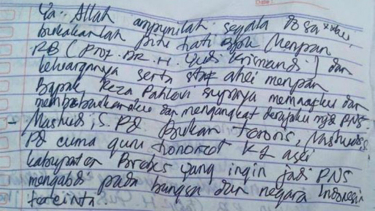 Ya Allah ampunilah segala dosa²ku,
bukakanlah pintu hati Bpk Menpan
RB (Prof. DR. H. Yudi Krisnandi) dan
keluarganya serta staf ahei menpan
Bapak Reza Pahlevi supaya memaafku dan
membebaskanku dan mengangkat derajatku mjd PNS
- Mashudi, S. Pd bukan teroris, Mashudi, S.
Pd cuma guru honorer K2 asei
kabupaten Brebes yang ingin jadi PNS
mengabdi pada bangsa dan negara Indonesia
tercinta